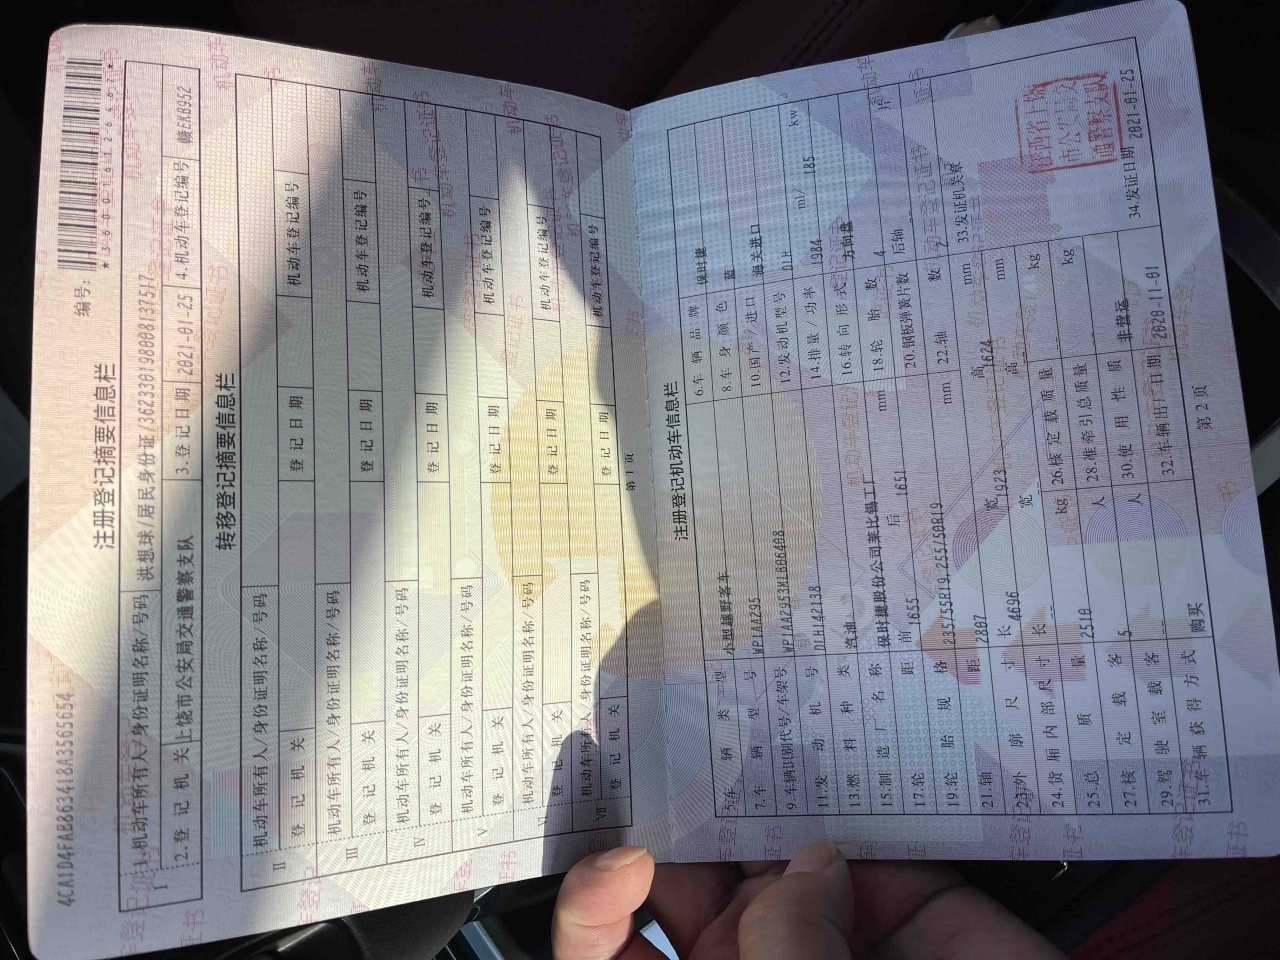 4CA1D4FAB863418A3565654
编号:
*360016126462*
注册登记摘要信息栏
Ⅰ
1.机动车所有人/身份证明名称/号码 洪想球/居民身份证/362330198008137517
2.登记机关 上饶市公安局交通警察支队 3.登记日期 2021-01-25 4.机动车登记编号 赣EKB952
转移登记摘要信息栏
Ⅱ
机动车所有人/身份证明名称/号码
登记机关 登记日期 机动车登记编号
Ⅲ
机动车所有人/身份证明名称/号码
登记机关 登记日期 机动车登记编号
Ⅳ
机动车所有人/身份证明名称/号码
登记机关 登记日期 机动车登记编号
Ⅴ
机动车所有人/身份证明名称/号码
登记机关 登记日期 机动车登记编号
Ⅵ
机动车所有人/身份证明名称/号码
登记机关 登记日期 机动车登记编号
Ⅶ
机动车所有人/身份证明名称/号码
登记机关 登记日期 机动车登记编号
第 1 页
注册登记机动车信息栏
5.车辆类型 小型越野客车 6.车辆品牌 保时捷
7.车辆型号 WP1AA295 8.车身颜色 蓝
9.车辆识别代号/车架号 WP1AA2953MLB06408 10.国产/进口 海关进口
11.发动机号 DLH142138 12.发动机型号 DLH
13.燃料种类 汽油 14.排量/功率 1984 ml/ 185 kw
15.制造厂名称 保时捷股份公司莱比锡工厂 16.转向形式 方向盘
17.轮距 前 1655 后 1651 mm 18.轮胎数 4
19.轮胎规格 235/55R19,255/50R19 20.钢板弹簧片数 后轴 -- 片
21.轴距 2807 mm 22.轴数 2
23.外廓尺寸 长 4696 宽 1923 高 1624 mm
33.发证机关章
24.货厢内部尺寸 长 -- 宽 -- 高 -- mm
25.总质量 2510 kg 26.核定载质量 -- kg
27.核定载客 5 人 28.准牵引总质量 -- kg
29.驾驶室载客 -- 人 30.使用性质 非营运
31.车辆获得方式 购买 32.车辆出厂日期 2020-11-01 34.发证日期 2021-01-25
江西省上饶
市公安局交
通警察支队
第 2 页